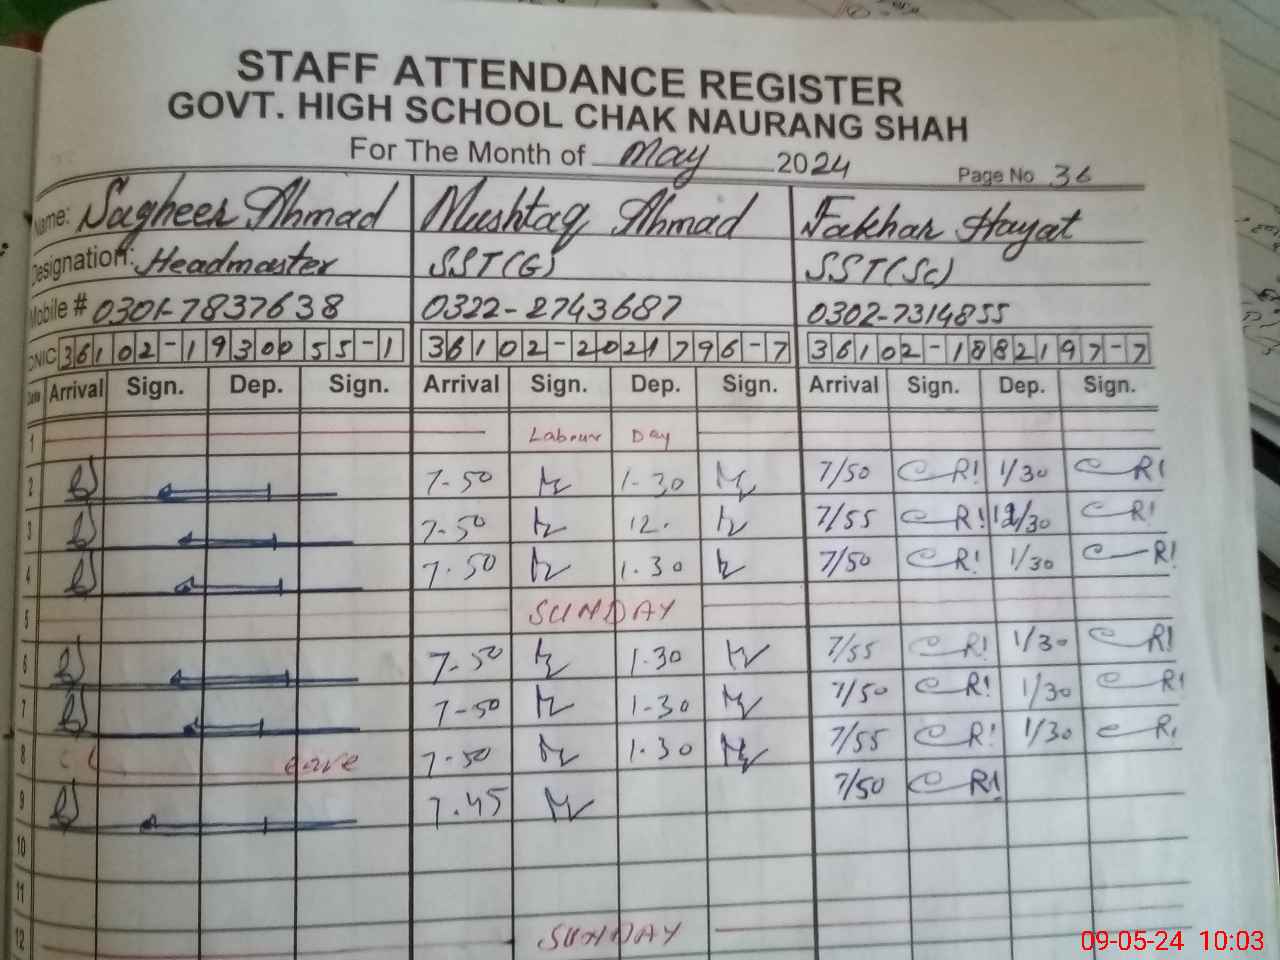 STAFF ATTENDANCE REGISTER
GOVT. HIGH SCHOOL CHAK NAURANG SHAH
For The Month of May 2024 Page No 36
Name: Sagheer Ahmad Mushtaq Ahmad Fakhar Hayat
Designation: Headmaster SST(G) SST(Sc)
Mobile # 0301-7837638 0322-2743687 0302-7314855
CNIC 36102-1930055-1 36102-2021796-7 36102-1882197-7
Date Arrival Sign. Dep. Sign. Arrival Sign. Dep. Sign. Arrival Sign. Dep. Sign.
1 Labour Day
2 7-50 1-30 7/50 1/30
3 7-50 12. 7/55 12/30
4 7.50 1.30 7/50 1/30
5 SUNDAY
6 7-50 1.30 7/55 1/30
7 7-50 1-30 7/50 1/30
8 eave 7-50 1-30 7/55 1/30
9 7.45 7/50
10
11
12 SUNDAY
09-05-24 10:03